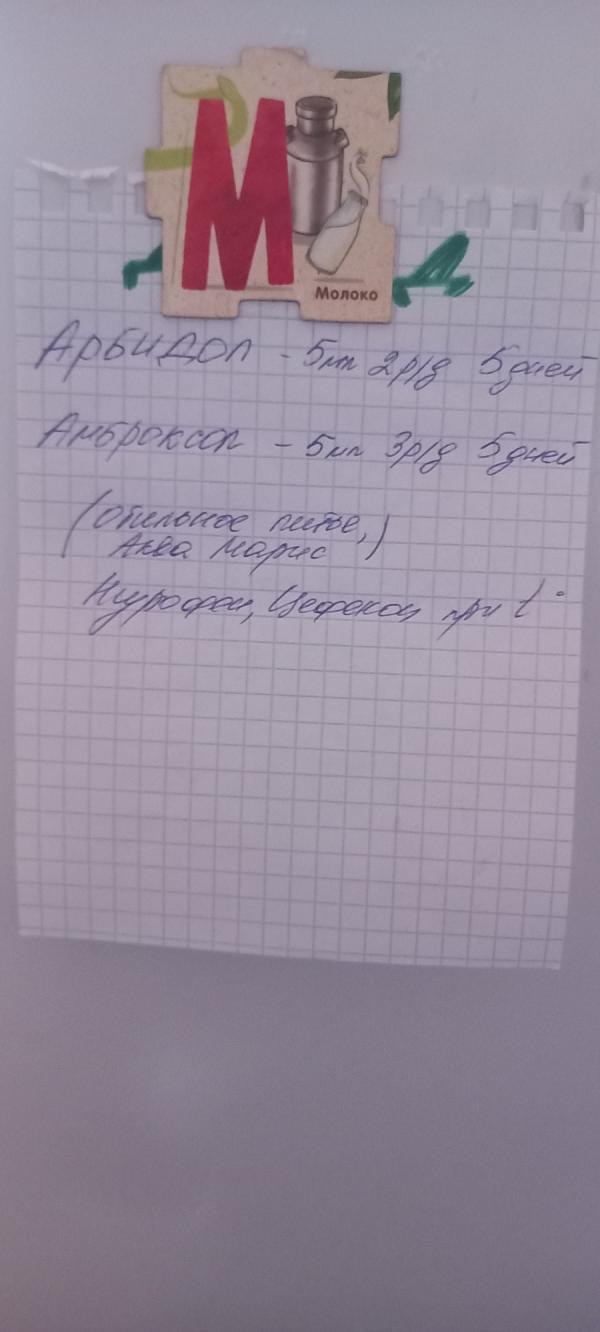 М
Молоко
Арбидол - 5мл 2р/д 5дней
Амброксол - 5мл 3р/д 5дней
(обильное питье,)
Аква Марис
Нурофен, Цефекон при t°